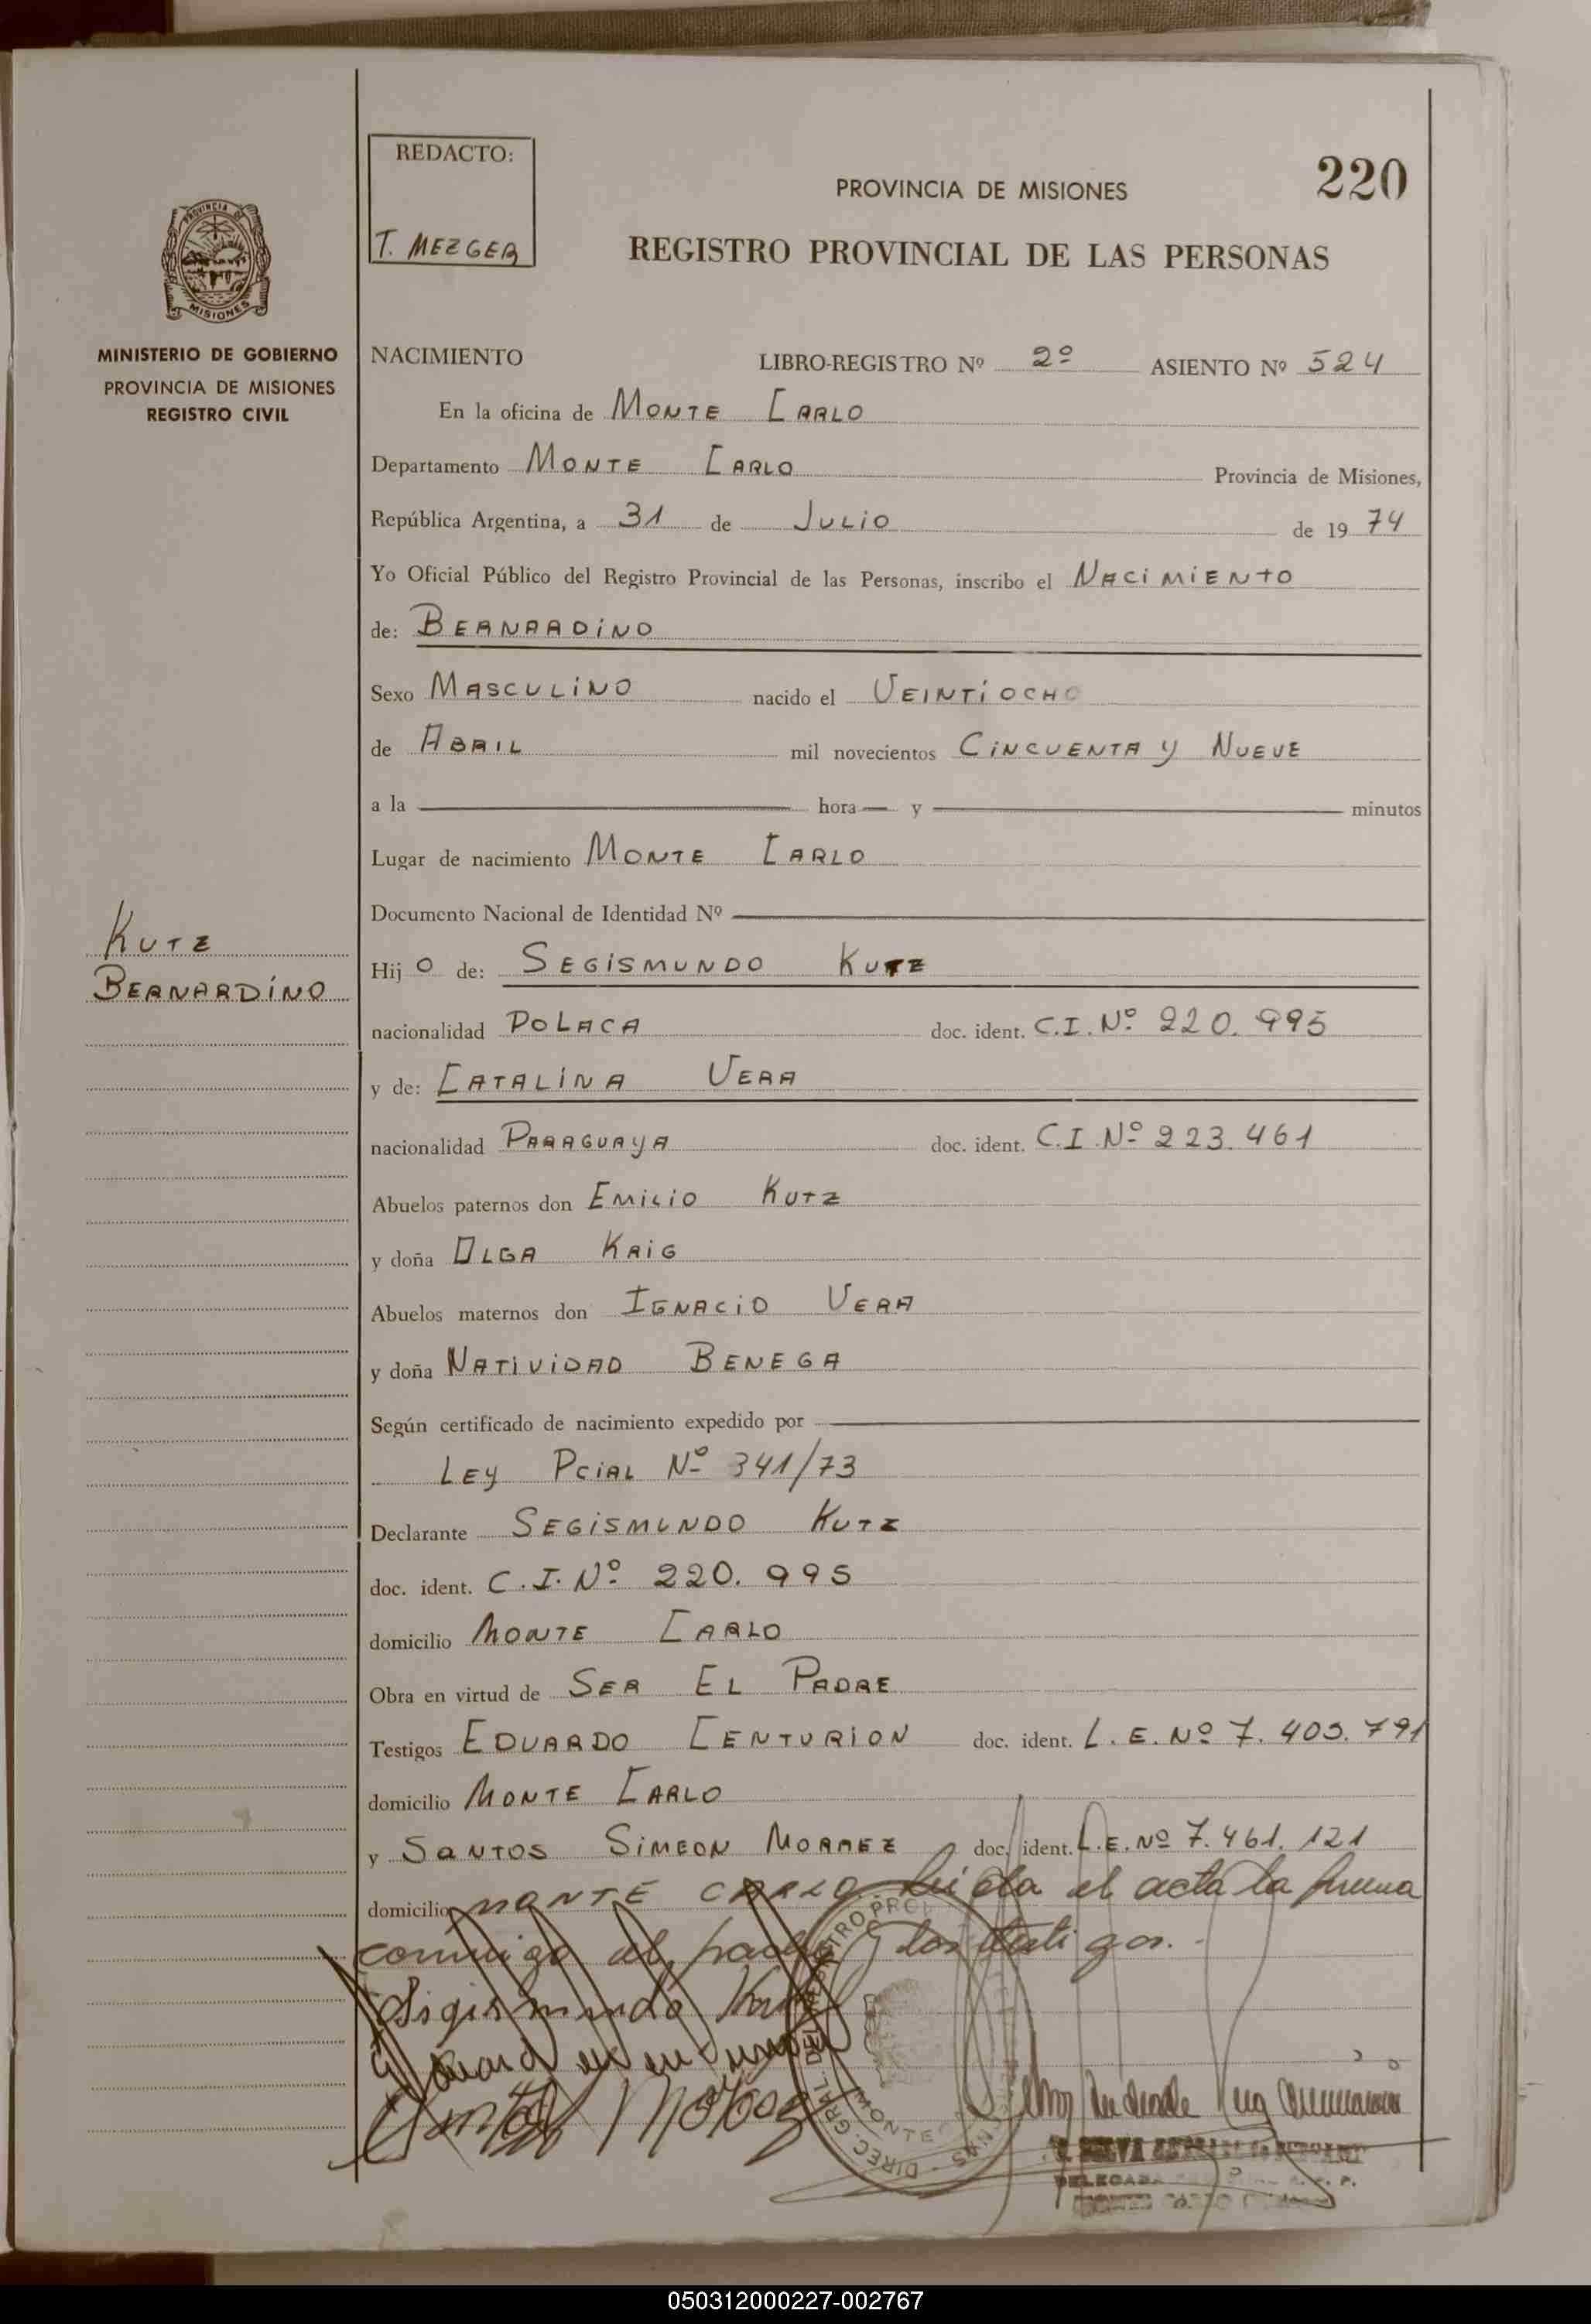 REDACTO:
T. MEZGER
220
PROVINCIA DE MISIONES
REGISTRO PROVINCIAL DE LAS PERSONAS
PROVINCIA DE
MISIONES
MINISTERIO DE GOBIERNO
PROVINCIA DE MISIONES
REGISTRO CIVIL
NACIMIENTO LIBRO-REGISTRO Nº 2º ASIENTO Nº 524
En la oficina de MONTE CARLO
Departamento MONTE CARLO Provincia de Misiones,
República Argentina, a 31 de JULIO de 19 74
Yo Oficial Público del Registro Provincial de las Personas, inscribo el NACIMIENTO
de: BERNARDINO
Sexo MASCULINO nacido el VEINTIOCHO
de ABRIL mil novecientos CINCUENTA Y NUEVE
a la hora y minutos
Lugar de nacimiento MONTE CARLO
Documento Nacional de Identidad Nº
KUTZ
BERNARDINO
Hij O de: SEGISMUNDO KUTZ
nacionalidad POLACA doc. ident. C.I. Nº 220.995
y de: CATALINA VERA
nacionalidad PARAGUAYA doc. ident. C.I. Nº 223.461
Abuelos paternos don EMILIO KUTZ
y doña OLGA KRIG
Abuelos maternos don IGNACIO VERA
y doña NATIVIDAD BENEGA
Según certificado de nacimiento expedido por
LEY PCIAL Nº 341/73
Declarante SEGISMUNDO KUTZ
doc. ident. C.I. Nº 220.995
domicilio MONTE CARLO
Obra en virtud de SER EL PADRE
Testigos EDUARDO CENTURION doc. ident. L.E. Nº 7.403.791
domicilio MONTE CARLO
y SANTOS SIMEON MORREZ doc. ident. L.E. Nº 7.461.121
domicilio MONTE CARLO.- Leida el acta la firma
conmigo el padre y los testigos.-
Sigismundo
DIREC. GRAL. DEL
DELEGADA
050312000227-002767